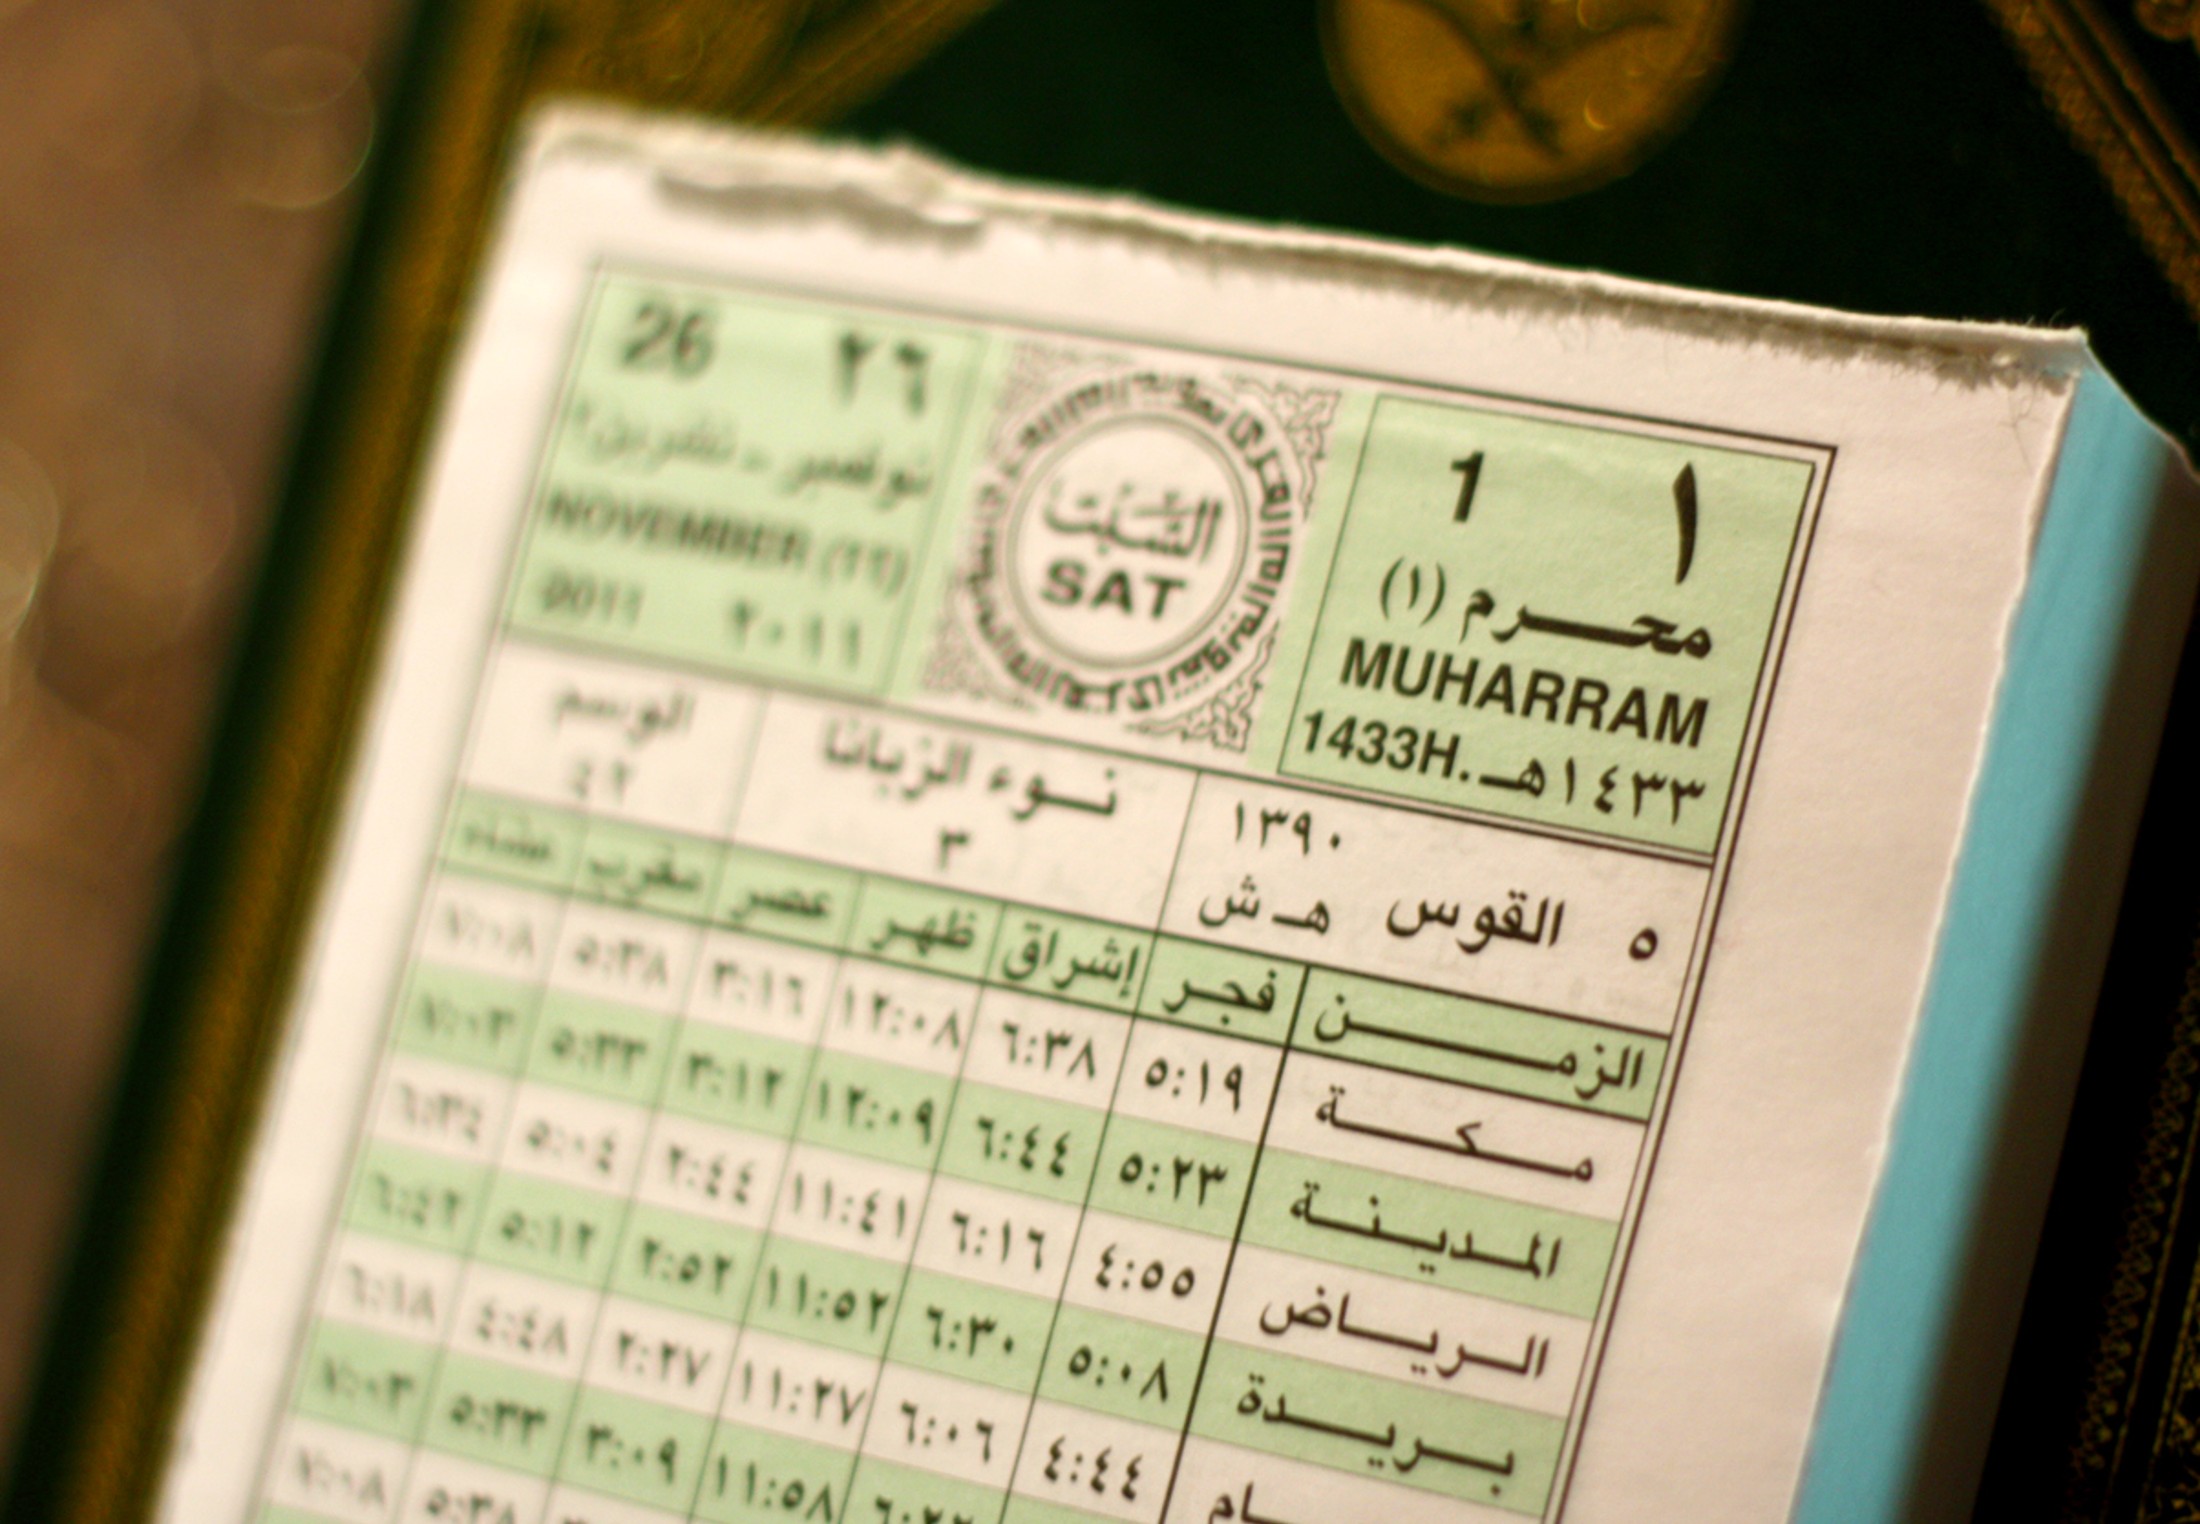 ١ 1
محرم (١)
MUHARRAM
1433H. ١٤٣٣هـ
السبت
SAT
26 ٢٦
نوفمبر - تشرين٢
NOVEMBER (١١)
2011 ٢٠١١
٥ القوس ١٣٩٠ هـ ش
نوء الزبانا
٣
الوسم
٤٢
الزمن فجر إشراق ظهر عصر مغرب عشاء
مكة ٥:١٩ ٦:٣٨ ١٢:٠٨ ٣:١٦ ٥:٣٨ ٧:٠٨
المدينة ٥:٢٣ ٦:٤٤ ١٢:٠٩ ٣:١٢ ٥:٣٣ ٧:٠٣
الرياض ٤:٥٥ ٦:١٦ ١١:٤١ ٢:٤٤ ٥:٠٤ ٦:٣٤
بريدة ٥:٠٨ ٦:٣٠ ١١:٥٢ ٢:٥٢ ٥:١٢ ٦:٤٢
٤:٤٤ ٦:٠٦ ١١:٢٧ ٢:٢٧ ٤:٤٨ ٦:١٨
١١:٥٨ ٣:٠٩ ٥:٣٣ ٧:٠٣
٥:٣٨ ٧:٠٨